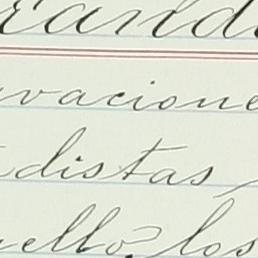 rand
vacione
distas
ello? los